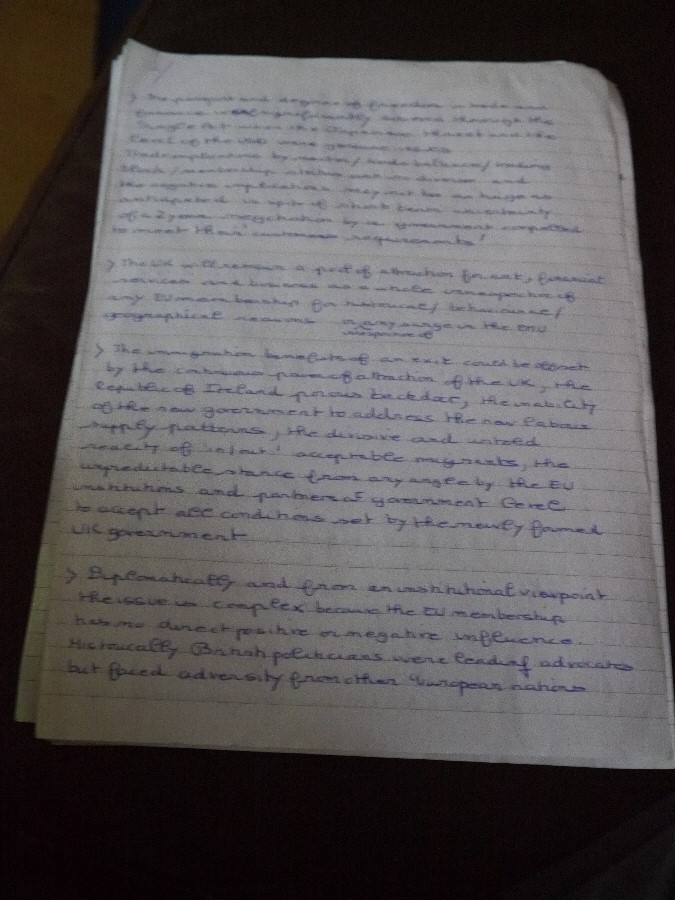 > The passport and degree of freedom in trade and
finance were significantly altered through the
Single Act when the Japanese threat and the
level of the were genuine issues
Trade implications by sector/ trade balance/ trading
block/ membership status with no division and
the negative implications may not be as huge as
anticipated in spite of short term uncertainty
of a 2 year negotiation by a government compelled
to meet their 'customers requirements'
> The UK will remain a port of attraction for art, financial
services and business as a whole irrespective of
any EU membership for historical/ behavioural/
geographical reasons in any surge in the EMU
irrespective of
> The immigration benefits of an exit could be offset
by the continuous power of attraction of the UK, the
Republic of Ireland porous backdoor, the inability
of the new government to address the new labour
supply patterns, the divisive and untold
reality of 'in/out' acceptable migrants, the
unpredictable stance from any angle by the EU
institutions and partners at government level
to accept all conditions set by the newly formed
UK government
> Diplomatically and from an institutional viewpoint
the issue is complex because the EU membership
has no direct positive or negative influence.
Historically British politicians were leading advocates
but faced adversity from other European nations